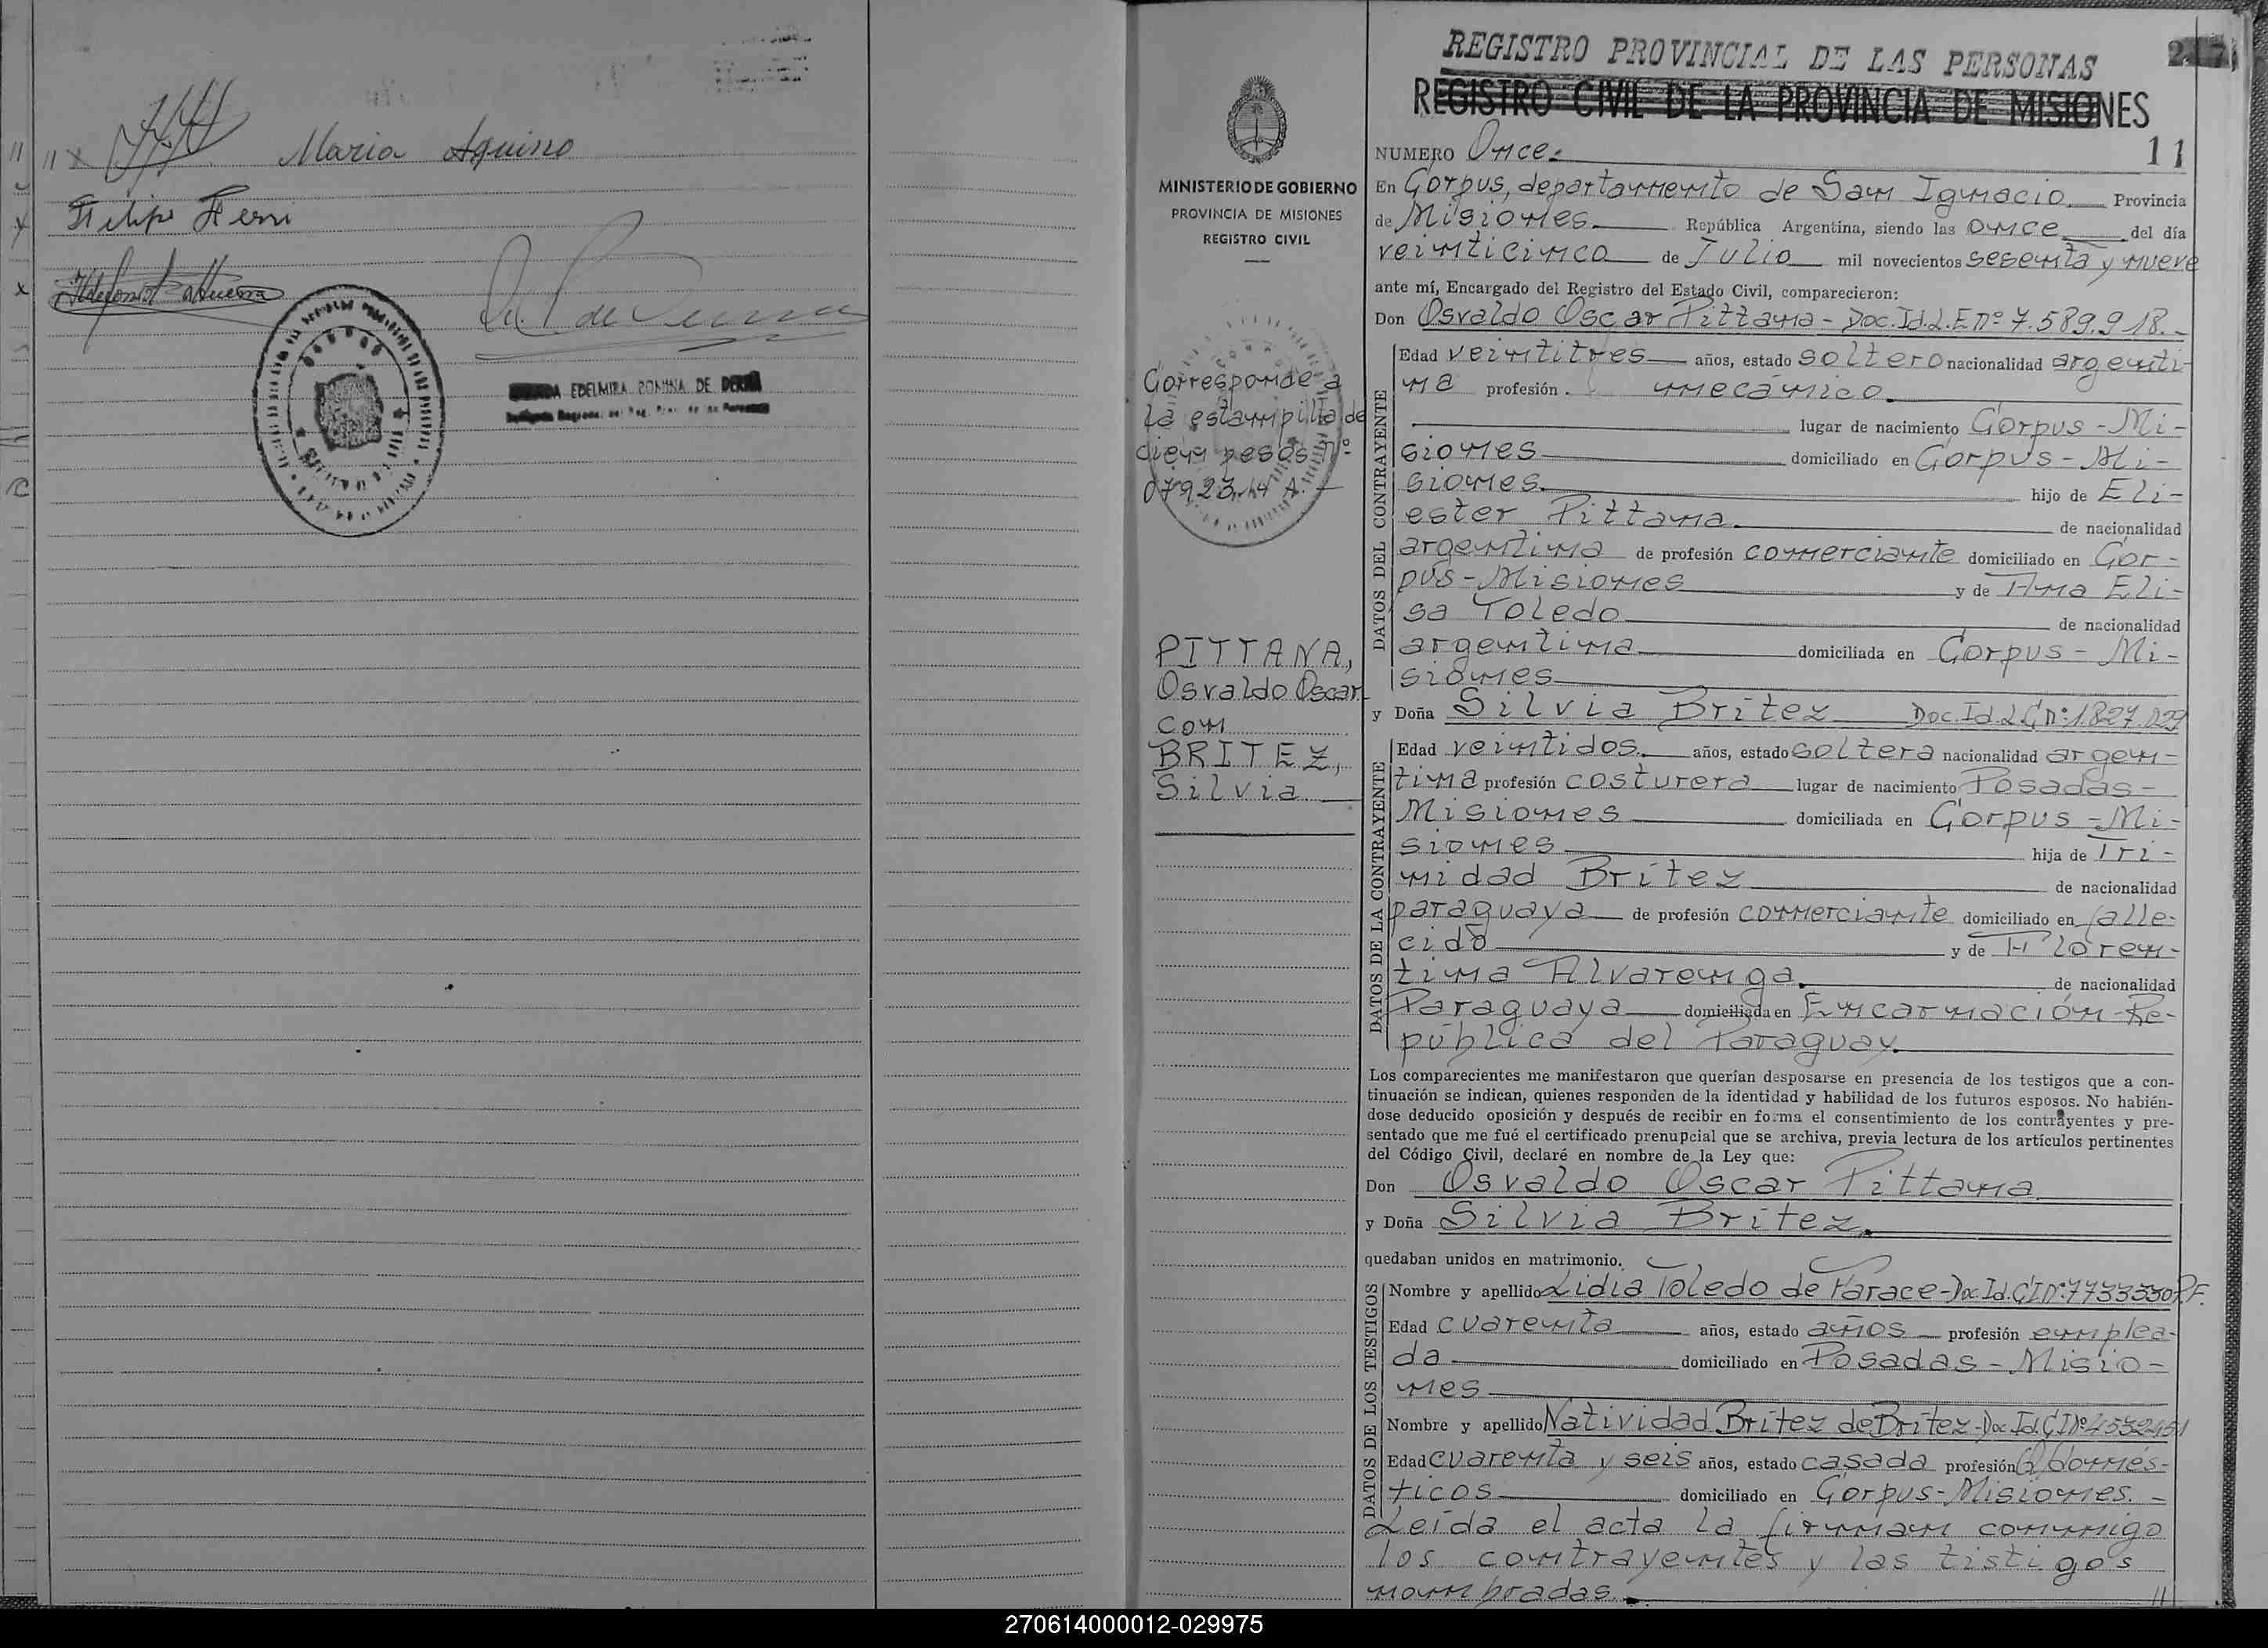 Maria Aquino
Felipe
EDELMIRA ROMINA DE
REGISTRO PROVINCIAL DE LAS PERSONAS
REGISTRO CIVIL DE LA PROVINCIA DE MISIONES
MINISTERIO DE GOBIERNO
PROVINCIA DE MISIONES
REGISTRO CIVIL
Corresponde a
la estampilla de
diez pesos nº
PITTANA,
Osvaldo Oscar
con
BRITEZ,
Silvia
NUMERO Once.
11
En Corpus, departamento de San Ignacio Provincia
de Misiones República Argentina, siendo las once del día
veinticinco de Julio mil novecientos sesenta y nueve
ante mí, Encargado del Registro del Estado Civil, comparecieron:
Don Osvaldo Oscar Pittana - Doc. Id. L.E nº 7.589.918.-
DATOS DEL CONTRAYENTE
Edad veintitres años, estado soltero nacionalidad argenti-
na profesión mecanico.
lugar de nacimiento Corpus - Mi-
siones domiciliado en Corpus - Mi-
siones. hijo de Eli-
ester Pittana. de nacionalidad
argentina de profesión comerciante domiciliado en Cor-
pus - Misiones y de Ana Eli-
sa Toledo de nacionalidad
argentina domiciliada en Corpus - Mi-
siones
y Doña Silvia Britez Doc. Id. L.C nº: 1.827.029
DATOS DE LA CONTRAYENTE
Edad veintidos. años, estado soltera nacionalidad argen-
tina profesión costurera lugar de nacimiento Posadas -
Misiones domiciliada en Corpus - Mi-
siones hija de Tri-
nidad Britez de nacionalidad
paraguaya de profesión comerciante domiciliado en falle-
cido y de Floren-
tina Alvarenga. de nacionalidad
Paraguaya domiciliada en Encarnación - Re-
pública del Paraguay.
Los comparecientes me manifestaron que querían desposarse en presencia de los testigos que a con-
tinuación se indican, quienes responden de la identidad y habilidad de los futuros esposos. No habién-
dose deducido oposición y después de recibir en forma el consentimiento de los contrayentes y pre-
sentado que me fué el certificado prenupcial que se archiva, previa lectura de los artículos pertinentes
del Código Civil, declaré en nombre de la Ley que:
Don Osvaldo Oscar Pittana
y Doña Silvia Britez.
quedaban unidos en matrimonio.
DATOS DE LOS TESTIGOS
Nombre y apellido Lidia Toledo de Farace - Doc. Id. C.I nº: 7733330 P.F.
Edad cuarenta años, estado años profesión emplea-
da. domiciliado en Posadas - Misio-
nes
Nombre y apellido Natividad Britez de Britez - Doc. Id. C.I Nº
Edad cuarenta y seis años, estado casada profesión Q/ domés-
ticos domiciliado en Corpus - Misiones. -
Leída el acta la firman conmigo
los contrayentes y las tistigos
nombradas.
270614000012-029975